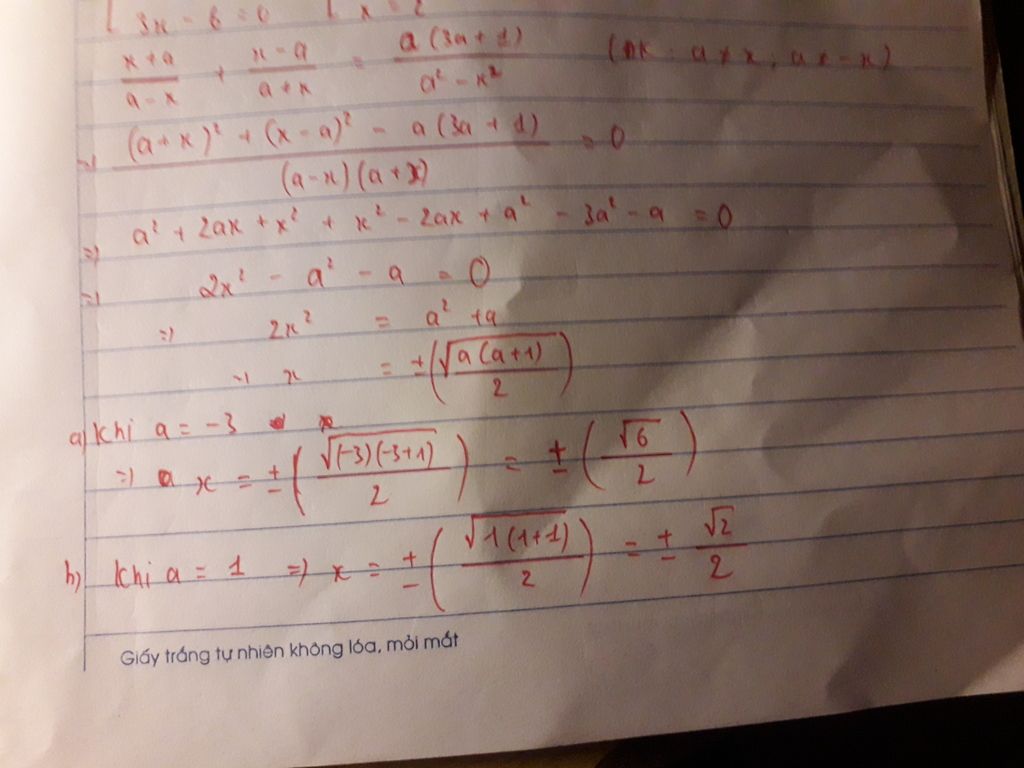 3x - 6 = 0 [ x = 2
\frac{x+a}{a-x} + \frac{x-a}{a+x} = \frac{a(3a+1)}{a² - x²} (ĐK: a ≠ x, a ≠ -x)
=> \frac{(a+x)² + (x-a)² - a(3a+1)}{(a-x)(a+x)} = 0
=> a² + 2ax + x² + x² - 2ax + a² - 3a² - a = 0
=> 2x² - a² - a = 0
=> 2x² = a² + a
=> x = ±(\frac{\sqrt{a(a+1)}}{2})
a) khi a = -3
=> x = ±(\frac{\sqrt{(-3)(-3+1)}}{2}) = ±(\frac{\sqrt{6}}{2})
b) khi a = 1 => x = ±(\frac{\sqrt{1(1+1)}}{2}) = ± \frac{\sqrt{2}}{2}
Giấy trắng tự nhiên không lóa, mỏi mắt